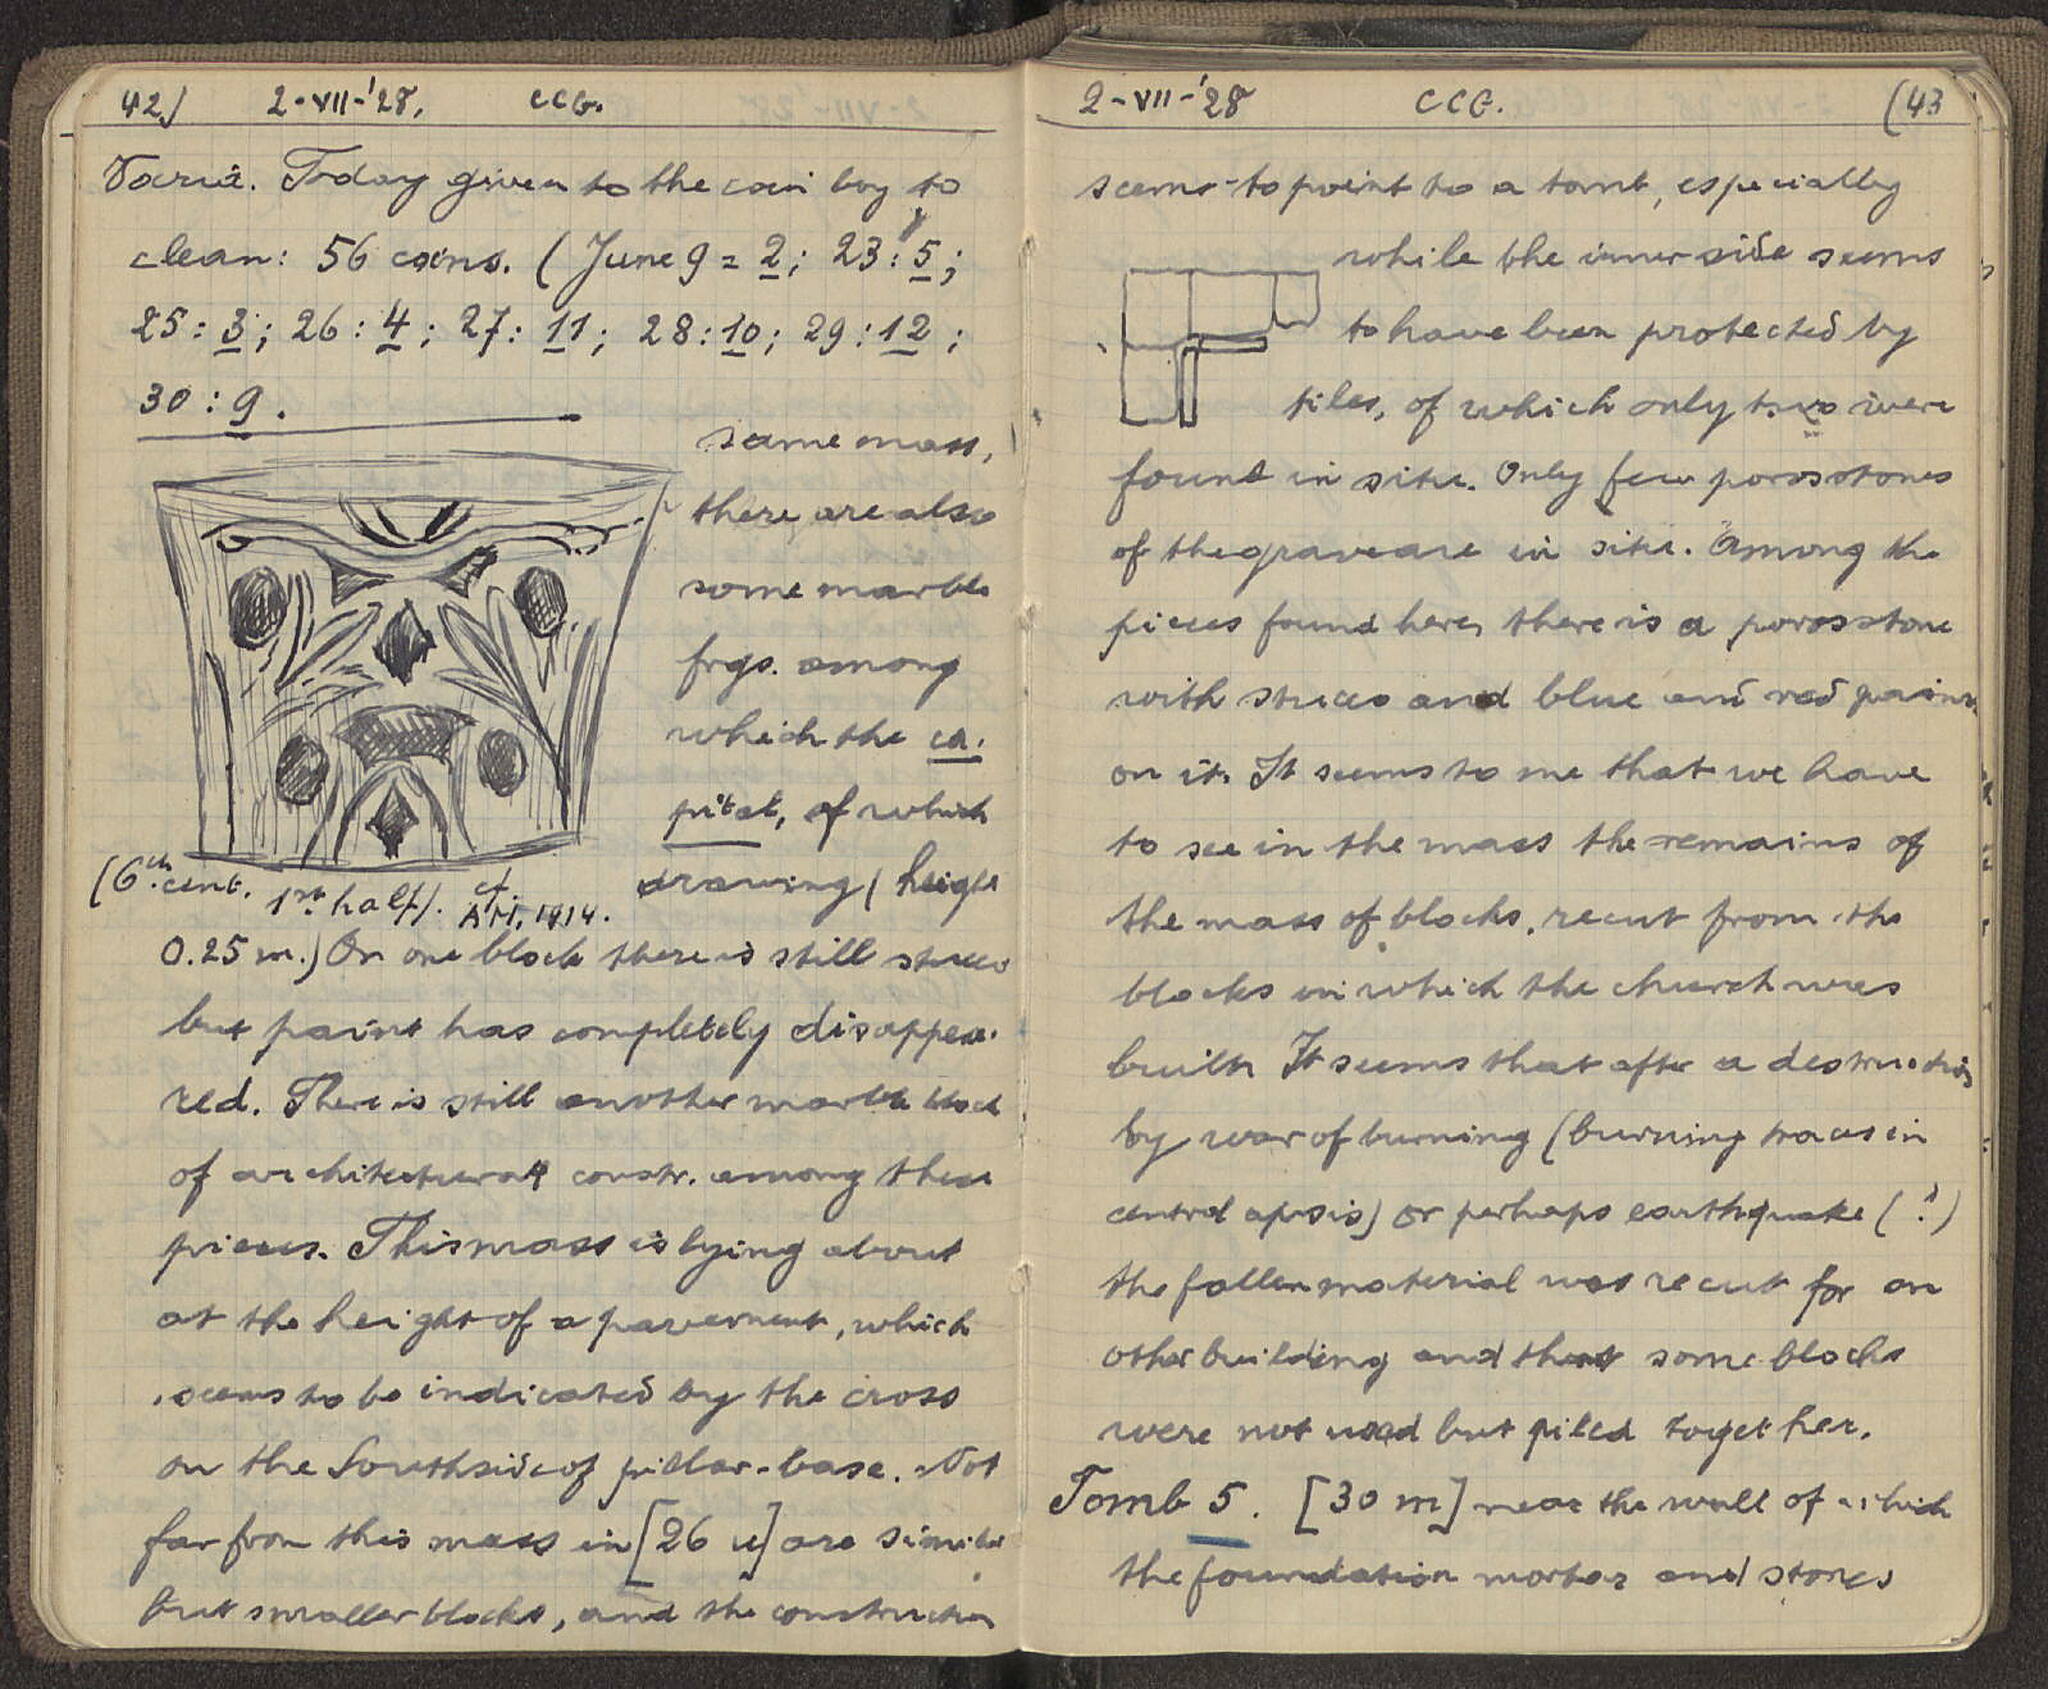 42) 2-VII-'28. CCG.
Varia. Today given to the coin boy to
clean: 56 coins. (June 9 = 2; 23: 5;
25: 3; 26: 4; 27: 11; 28: 10; 29: 12;
30: 9.
same mass,
there are also
some marble
frgs. among
which the ca-
pital, of which
drawing (height
(6th cent. 1st half). cf. A.M. 1914.
0.25 m.) On one block there is still stucco
but paint has completely disappea-
red. There is still another marble block
of architectural constr. among these
pieces. This mass is lying about
at the height of a pavement, which
seems to be indicated by the cross
on the Southside of pillar-base. Not
far from this mass in [26 u] are similar
but smaller blocks, and the construction
2-VII-'28 CCG. (43
seems to point to a tomb, especially
while the inner side seems
to have been protected by
tiles, of which only two were
found in situ. Only few poros stones
of the grave are in situ. Among the
pieces found here, there is a poros stone
with stucco and blue and red paint
on it. It seems to me that we have
to see in the mass the remains of
the mass of blocks, recut from the
blocks in which the church was
built. It seems that after a destruction
by war of burning (burning traces in
central apsis) or perhaps earthquake (?)
the fallen material was recut for an
other building and that some blocks
were not used but piled together.
Tomb 5. [30 m] near the wall of which
the foundation mortar and stones